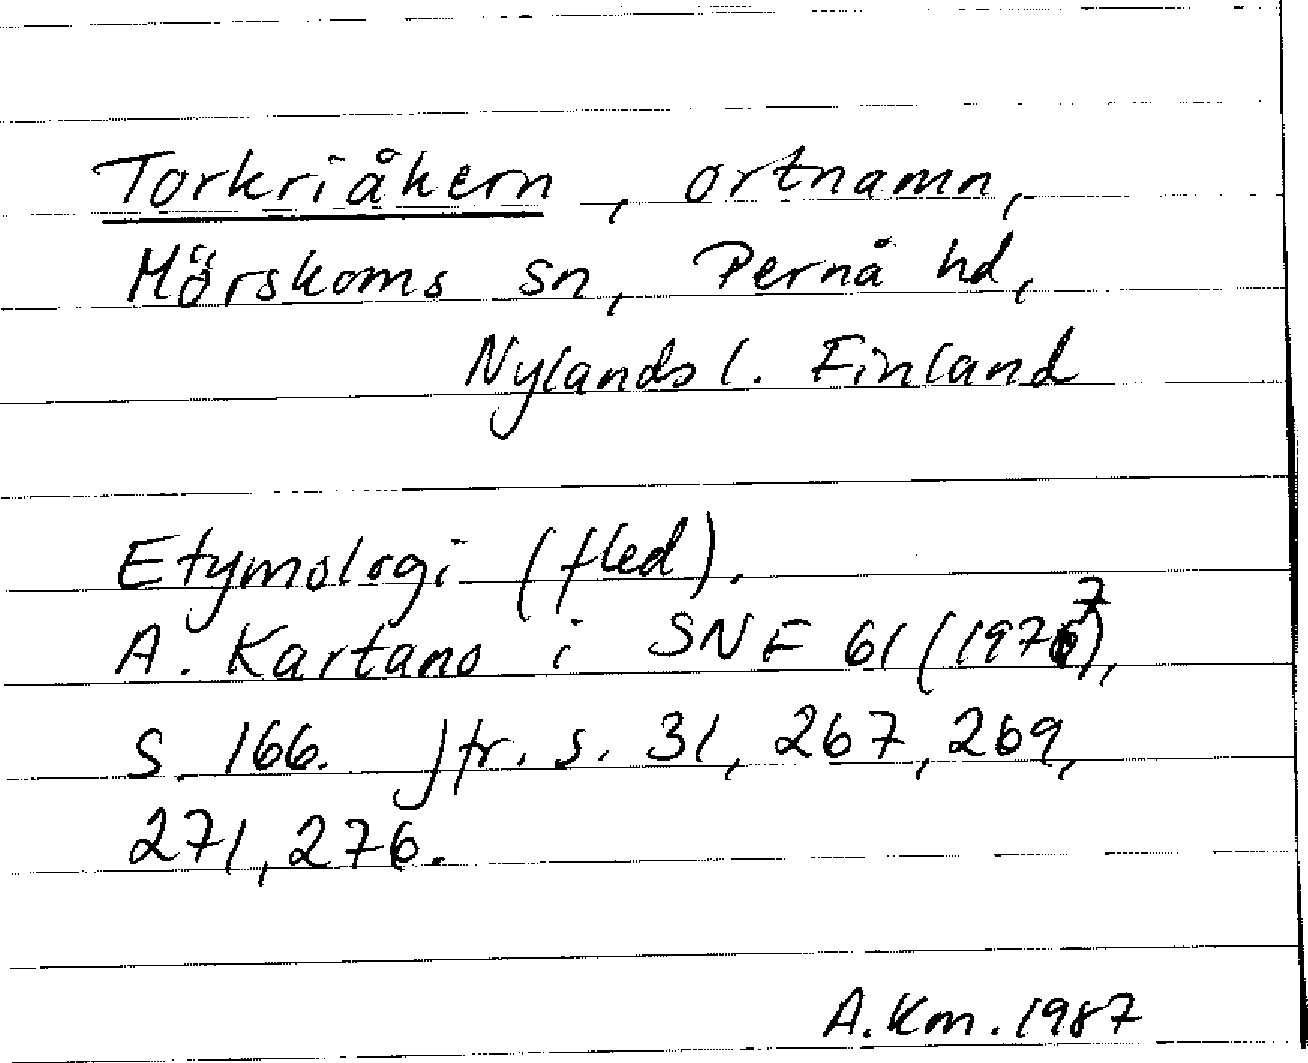 Torkriåkern, ortnamn,
Mörskoms sn, Pernå hd,
Nylands l. Finland
Etymologi (fled).
A. Kartano i SNF 61 (1977),
S. 166. Jfr. s. 31, 267, 269,
271, 276.
A.Km. 1987